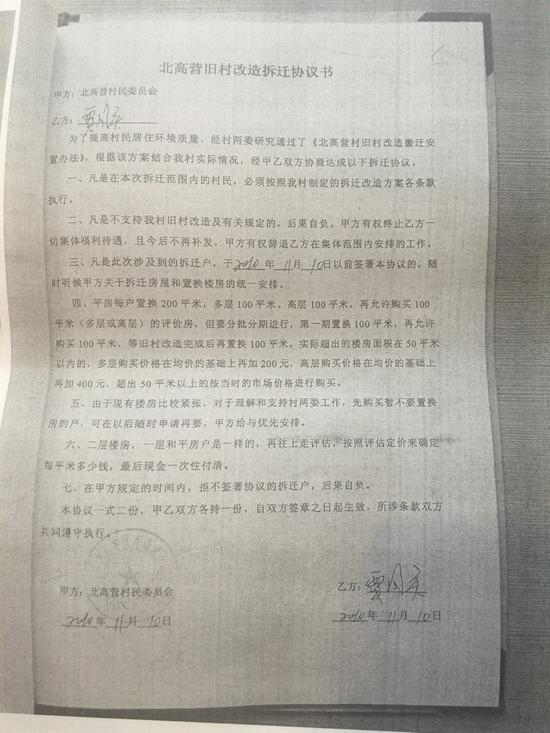 北高营旧村改造拆迁协议书
甲方：北高营村民委员会
乙方：贾
为了提高村民居住环境质量，经村两委研究通过了《北高营村旧村改造搬迁安
置办法》，根据该方案结合我村实际情况，经甲乙双方协商达成以下拆迁协议。
一、凡是在本次拆迁范围内的村民，必须按照我村制定的拆迁改造方案各条款
执行。
二、凡是不支持我村旧村改造及有关规定的，后果自负。甲方有权终止乙方一
切集体福利待遇，且今后不再补发，甲方有权辞退乙方在集体范围内安排的工作。
三、凡是此次涉及到的拆迁户，于2010年11月10日以前签署本协议的，随
时听候甲方关于拆迁房屋和置换楼房的统一安排。
四、平房每户置换 200 平米，多层 100 平米、高层 100 平米，再允许购买 100
平米（多层或高层）的评价房，但要分批分期进行，第一期置换 100 平米，再允许
购买 100 平米，等旧村改造完成后再置换 100 平米。实际超出的楼房面积在 50 平米
以内的，多层购买价格在均价的基础上再加 200 元，高层购买价格在均价的基础上
再加 400 元，超出 50 平米以上的按当时的市场价格进行购买。
五、由于现有楼房比较紧张，对于理解和支持村两委工作，先购买暂不要置换
房的户，可在以后随时申请再要，甲方给与优先安排。
六、二层楼房，一层和平房户是一样的，再往上走评估，按照评估定价来确定
每平米多少钱，最后现金一次性付清。
七、在甲方规定的时间内，拒不签署协议的拆迁户，后果自负。
本协议一式二份，甲乙双方各持一份，自双方签章之日起生效，所涉条款双方
共同遵守执行。
甲方：北高营村民委员会
乙方：贾
2010年11月10日
2010年11月10日